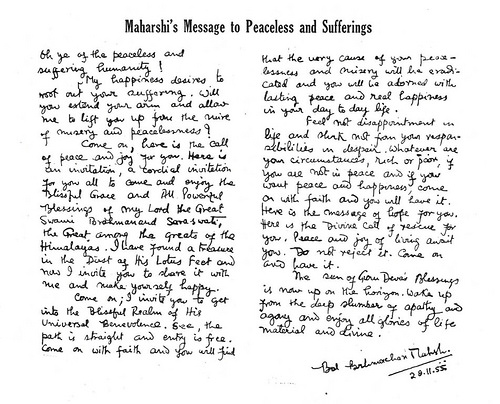 Maharshi's Message to Peaceless and Sufferings
Oh ye of the peaceless and
suffering humanity!
"My happiness desires to
root out your suffering. Will
you extend your arm and allow
me to lift you up from the mire
of misery and peacelessness?
Come on, here is the call
of peace and joy for you. Here is
an invitation, a cordial invitation
for you all to come and enjoy the
Blissful Grace and All Powerful
Blessings of my Lord the Great
Swami Brahmanand Saraswati,
the Great among the greats of the
Himalayas. I have found a treasure
in the Dust of His Lotus Feet and
now I invite you to share it with
me and make yourself happy.
Come on; I invite you to get
into the Blissful Realm of His
Universal Benevolence. See, the
path is straight and entry is free.
Come on with faith and you will find
that the very cause of your peace-
lessness and misery will be eradi-
cated and you will be adorned with
lasting peace and real happiness
in your day to day life.
Feel not disappointment in
life and shrk not from your respon-
sibilities in despair. Whatever are
your circumstances, rich or poor, if
you are not in peace and if you
want peace and happiness, come
on with faith and you will have it.
Here is the message of hope for you.
Here is the Divine Call of rescue for
you. Peace and joy of living await
you. Do not reject it. Come on
and have it.
The sun of Guru Deva's Blessings
is now up on the horizon. Wake up
from the deep slumber of apathy and
agony and enjoy all glories of life
material and divine.
Bal Brahmachari Mahesh
29.11.55